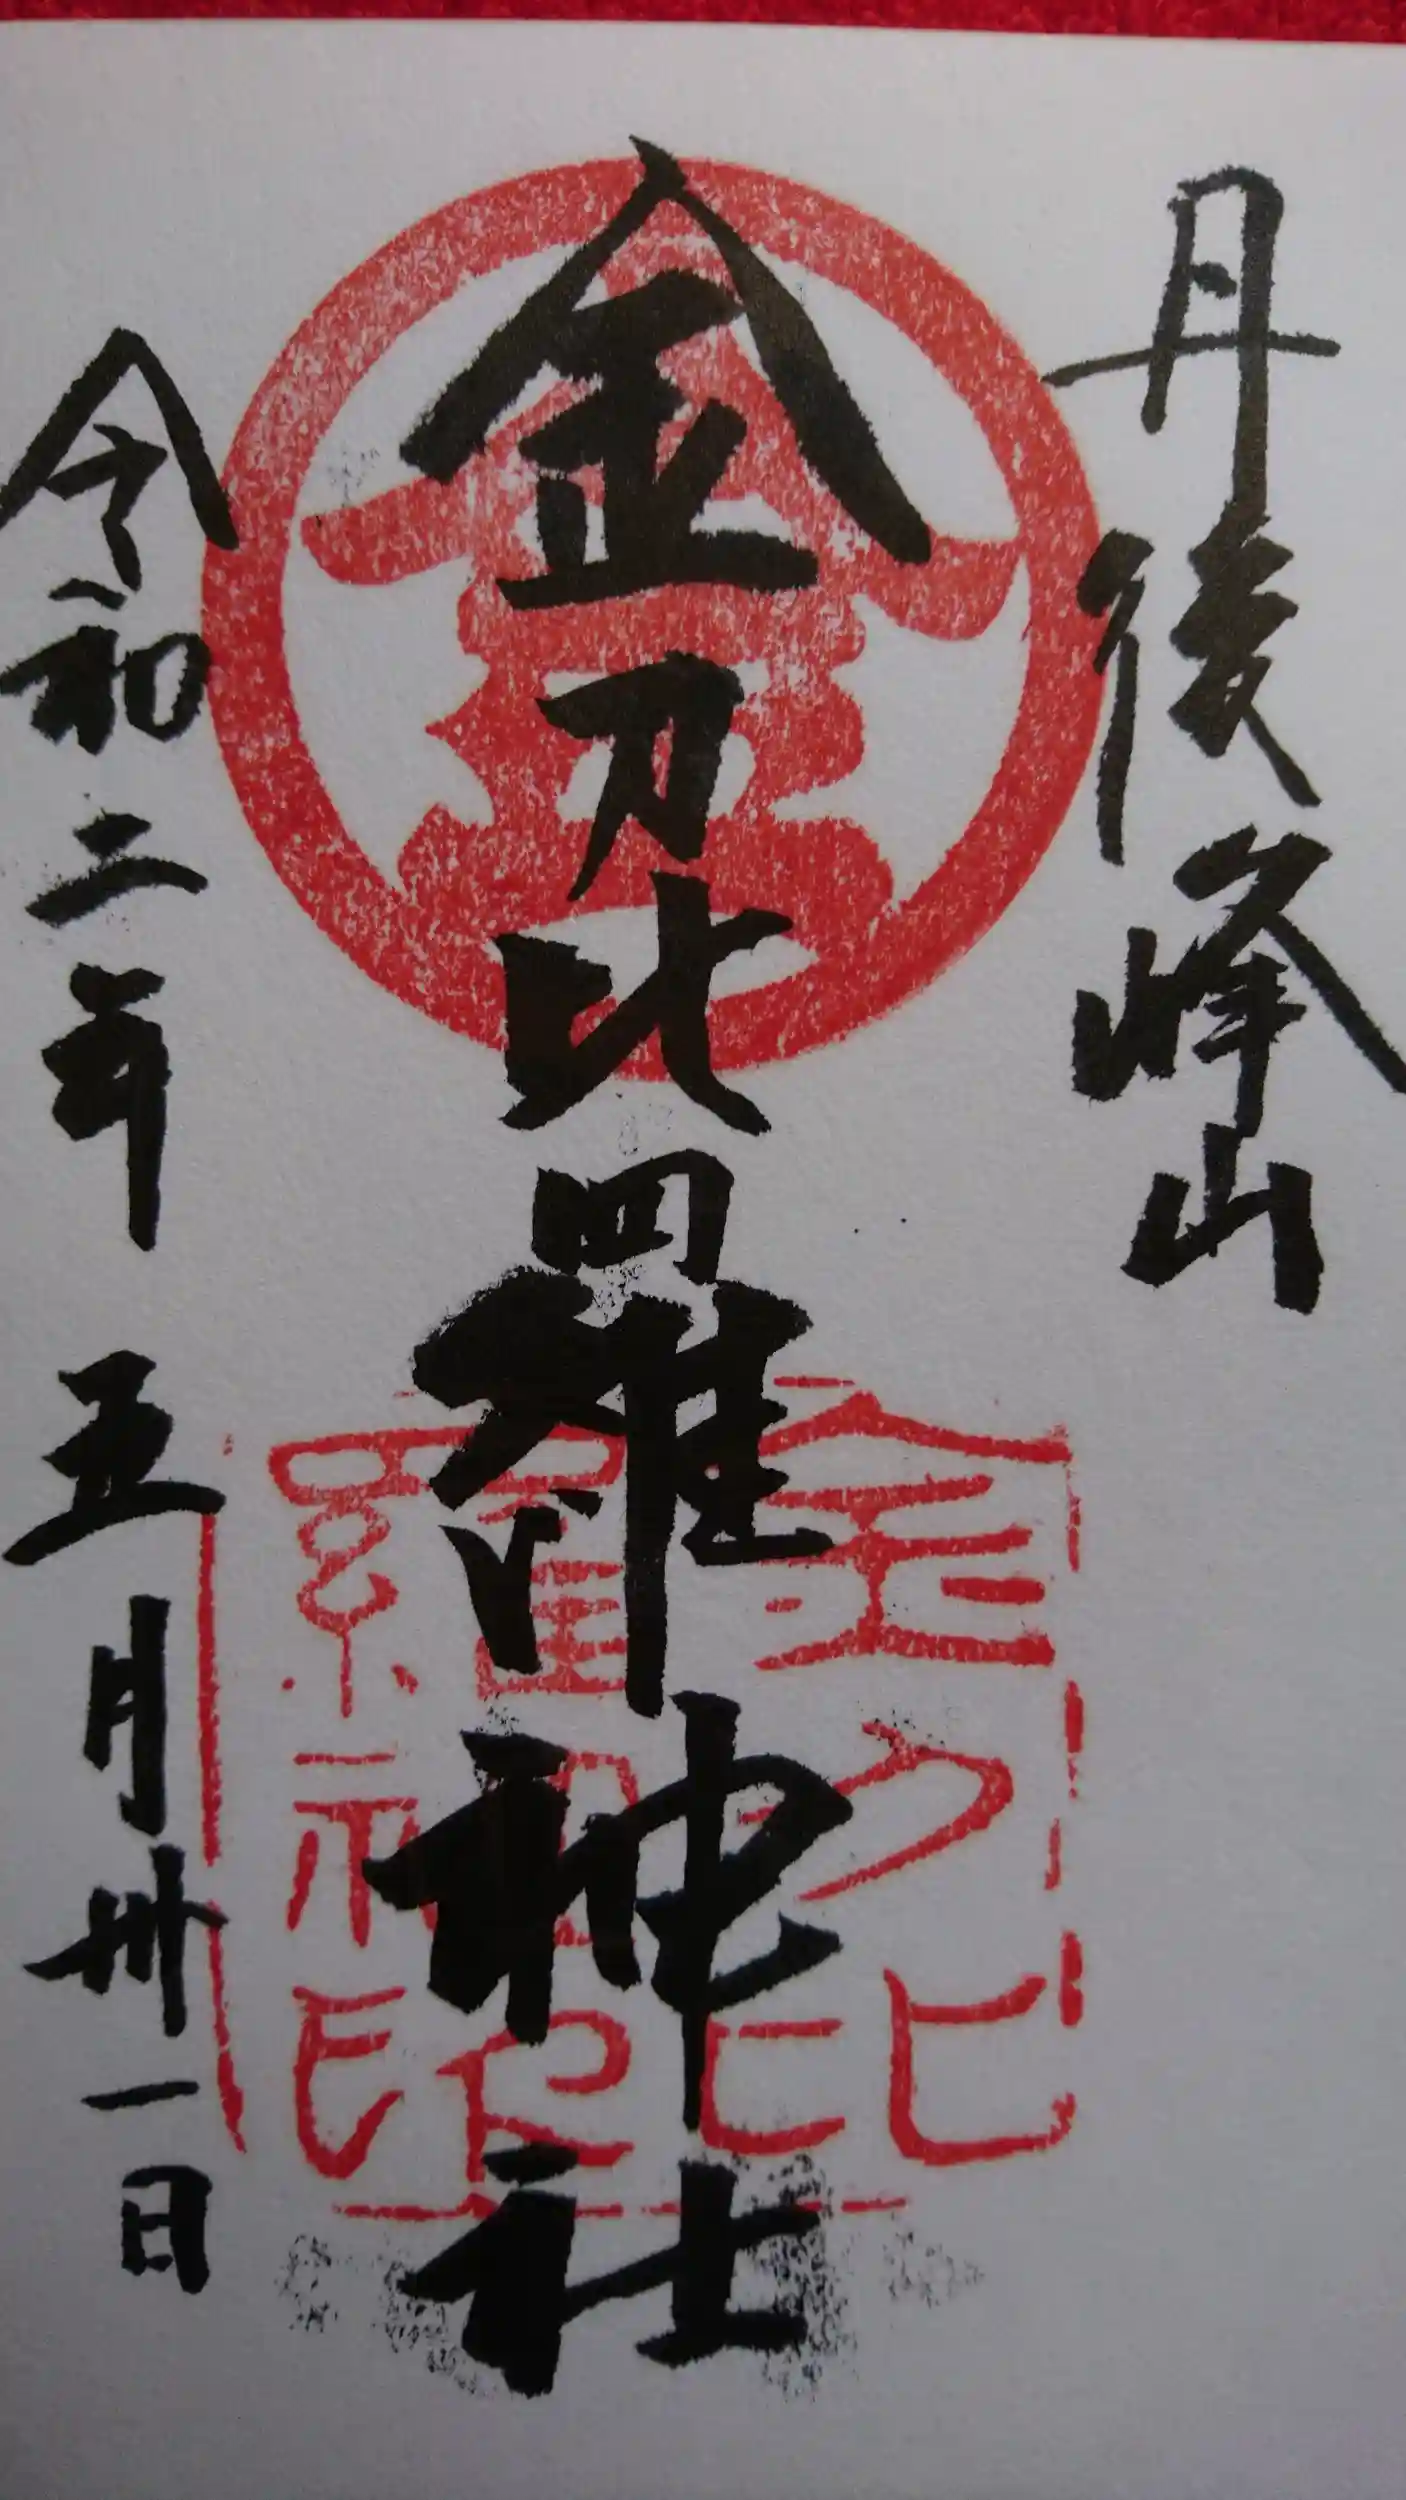 丹後峰山
金刀比羅神社
令和二年 五月卅一日
金
金刀比羅神社